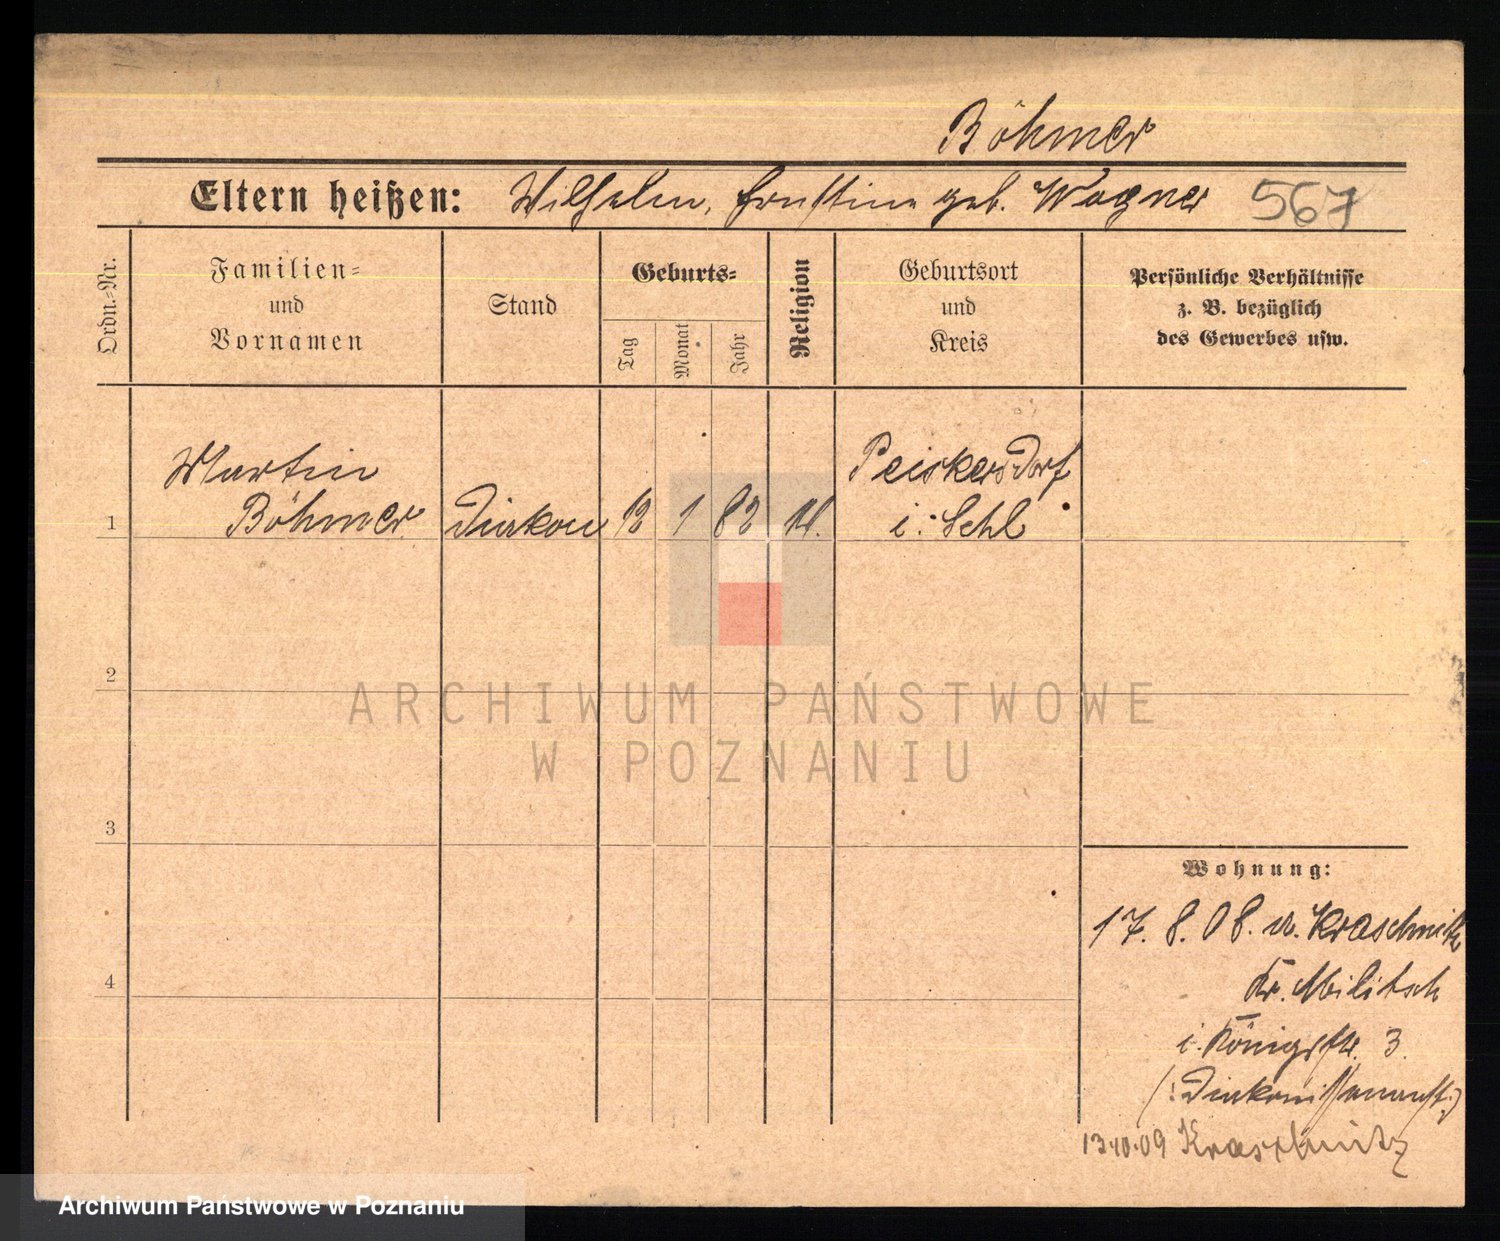 Böhmer
Eltern heißen: Wilhelm, Ernstine geb. Wagner 567
Ordn.-Nr.
Familien=
und
Vornamen
Stand
Geburts=
Tag
Monat
Jahr
Religion
Geburtsort
und
Kreis
Persönliche Verhältnisse
z. B. bezüglich
des Gewerbes usw.
1
Martin
Böhmer
Diakon
12 1 82
Peiskersdorf
i. Schl
2
3
4
Wohnung:
17. 8. 08. v. Kraschnitz
Kr. Militsch
i. Königstr. 3.
(: Diakonissenanst :)
13.10.09 Kraschnitz
ARCHIWUM PAŃSTWOWE
W POZNANIU
Archiwum Państwowe w Poznaniu